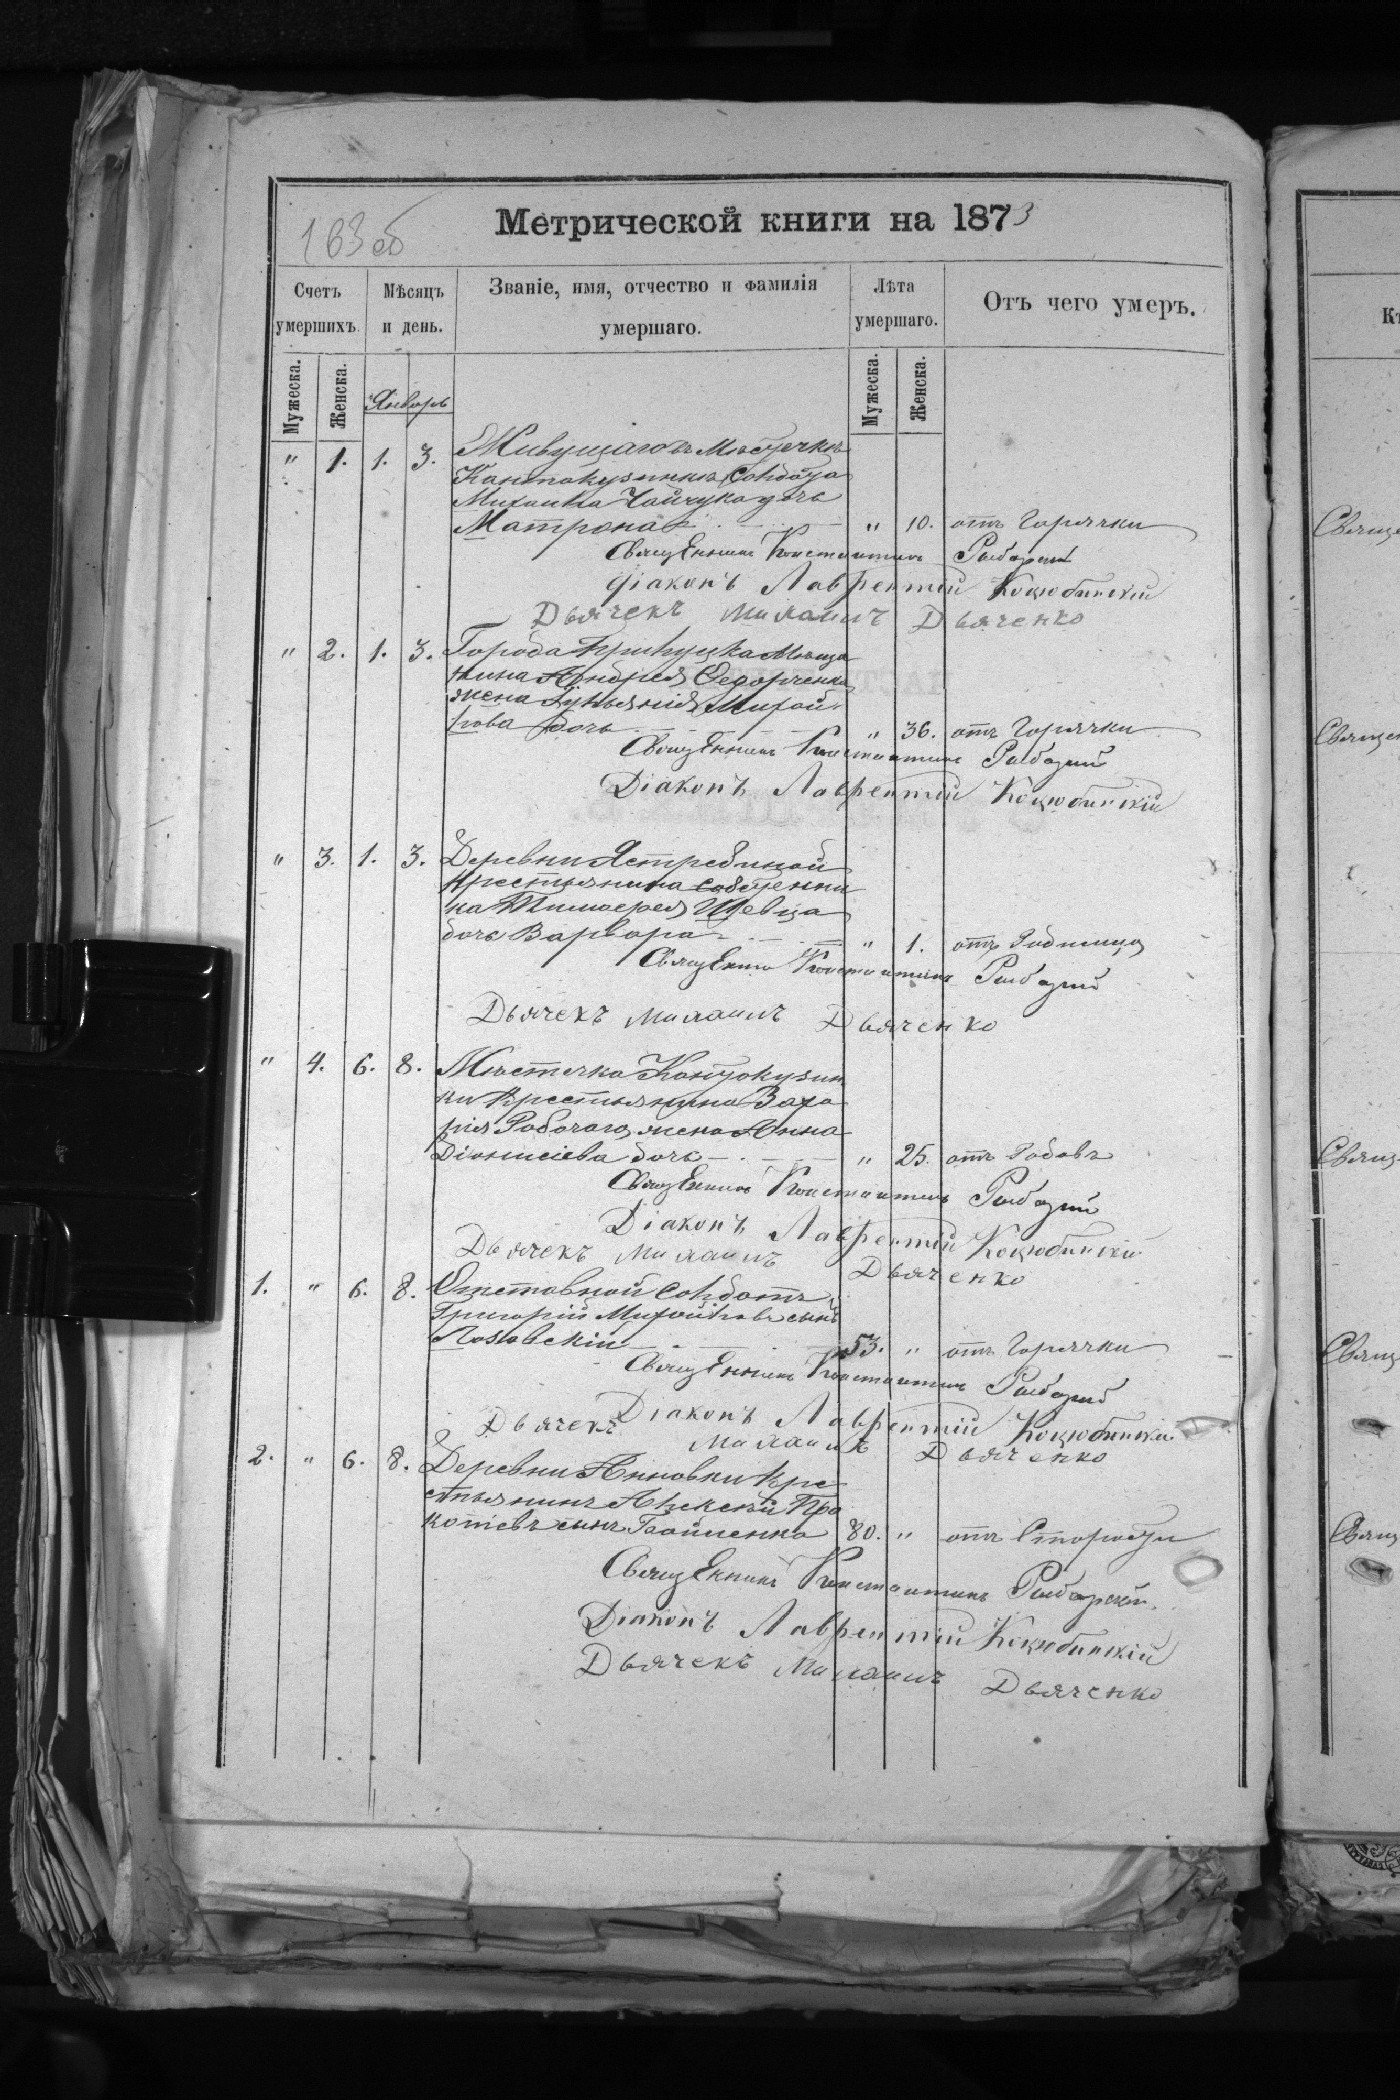 163 об
Метрической книги на 1873
Счетъ умершихъ.
Мѣсяцъ и день.
Званіе, имя, отчество и фамилія умершаго.
Лѣта умершаго.
Отъ чего умеръ.
Мужеска. Женска.
Январь
Мужеска. Женска.
" 1. 1. 3. Живущаго въ Мѣстечкѣ
Кантакузинкѣ Солдата
Михаила Чайчука дочь
Матрона " 10. отъ Горячки
Священникъ Константинъ
Діаконъ Лаврентій Коцюбинскій
Дьячекъ Михаилъ Дьяченко
" 2. 1. 3. Города Мѣща
нина Андрея Федорченка
жена Михай
лова дочь " 36. отъ Горячки
Священникъ Константинъ
Діаконъ Лаврентій Коцюбинскій
" 3. 1. 3. Деревни Ястребиной
крестьянина собственни
ка Тимофея Шевца
дочь Варвара " 1. отъ Родимца
Священникъ Константинъ
Дьячекъ Михаилъ Дьяченко
" 4. 6. 8. Мѣстечка Кантокузин
ки Крестьянина Заха
рія Робочаго жена Анна
Діонисіева дочь " 25. отъ Родовъ
Священникъ Константинъ
Діаконъ Лаврентій Коцюбинскій
Дьячекъ Михаилъ Дьяченко
1. " 6. 8. Отставной Солдатъ
Григорій Михайловъ сынъ
Лозовскій 53. " отъ Горячки
Священникъ Константинъ
Діаконъ Лаврентій Коцюбинскій
Дьячекъ Михаилъ Дьяченко
2. " 6. 8. Деревни Анновки Кре
стьянинъ Алексѣй Про
копіевъ сынъ 80. " отъ Старости
Священникъ Константинъ
Діаконъ Лаврентій Коцюбинскій
Дьячекъ Михаилъ Дьяченко